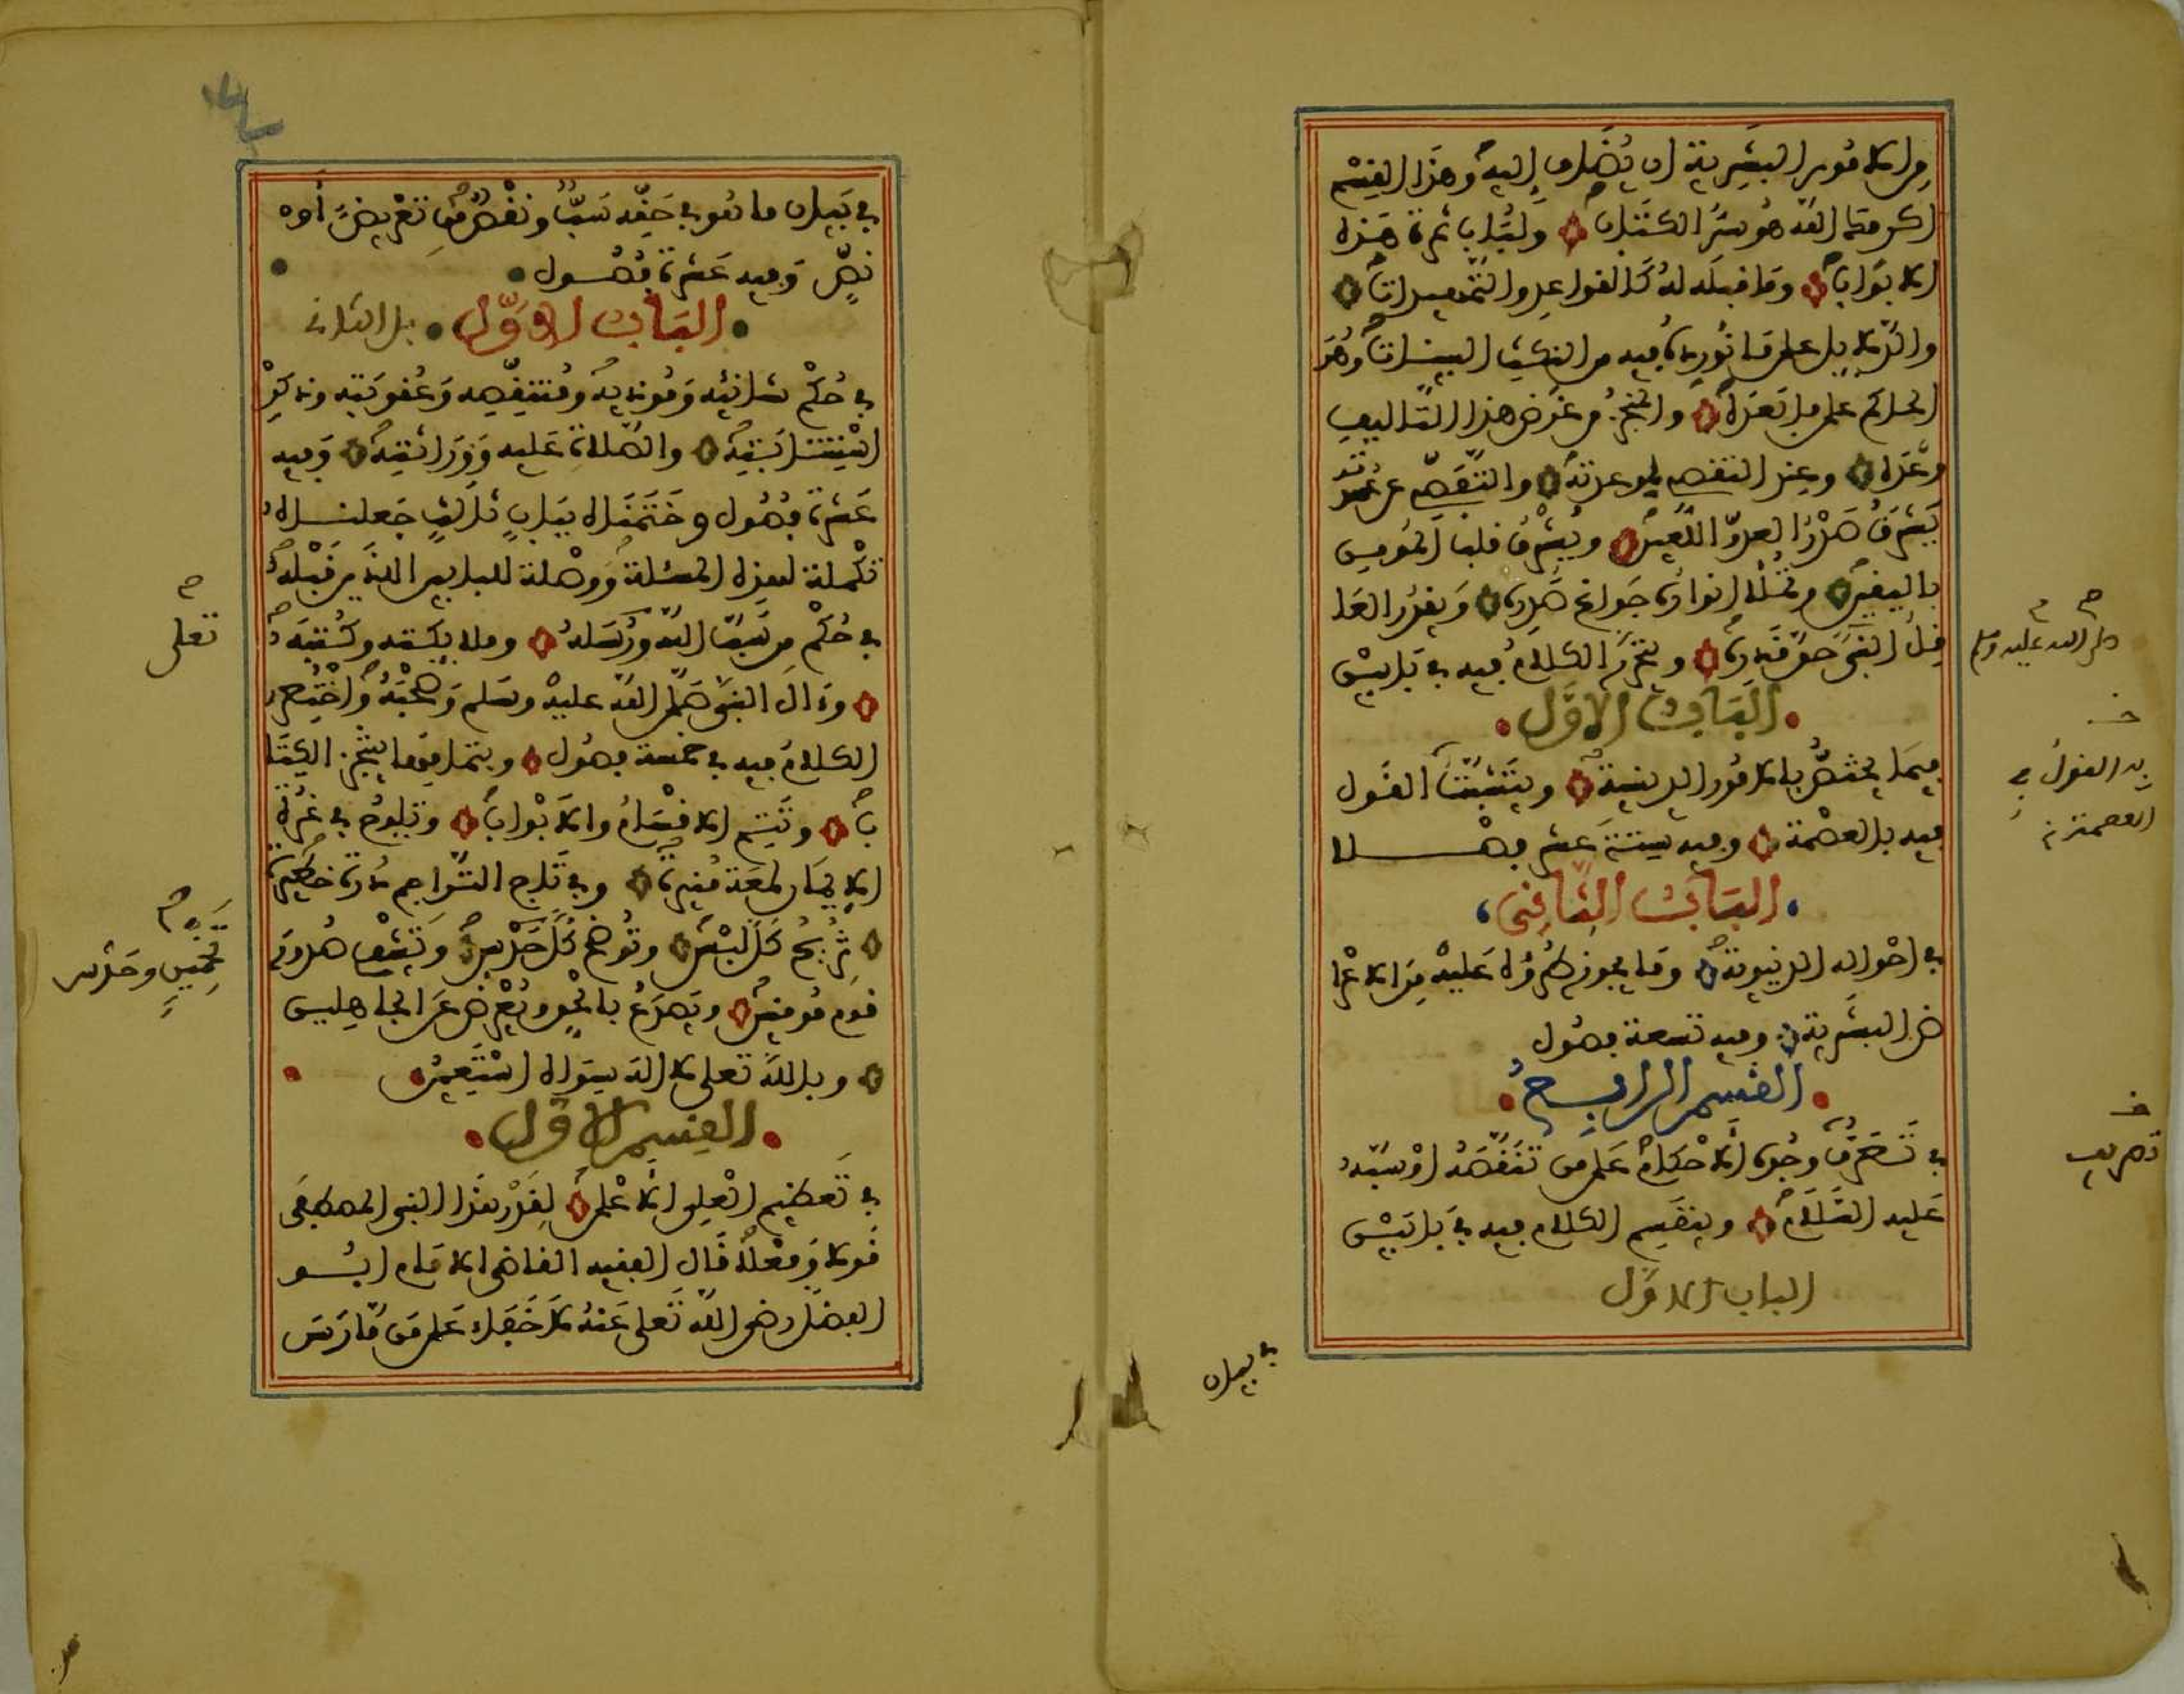 من الامور البشرية ان يضاف اليه وهذا القسم
اكرمك الله هو سر الكتاب ولباب ثمرة هذه
الابواب وما قبله له كالقواعد والتمهيدات
والدلايل على ما نورده فيه من النكت البينات وهو
الحاكم على ما بعده والمنجز من غرض هذا التاليف
وعده وعند التقصي لموعدته والتفصي عن عهدته
يشرق صدر العدو اللعين ويشرق قلب المومن
باليقين وتملا انواره جوانح صدره ويقدر العا
قل النبي حق قدره ويتحرر الكلام فيه في بابين
صلى الله عليه وسلم
الباب الاول
فيما يختص بالامور الدينية ويتشبث القول
به القول في
فيه بالعصمة وفيه ستة عشر فصلا
العصمة
الباب الثاني
في احواله الدنيوية وما يجوز طروه عليه من الاعرا
ض البشرية وفيه تسعة فصول
القسم الرابع
في تصرف وجوه الاحكام على من تنقصه او سبه
تصريف
عليه السلام وينقسم الكلام فيه في بابين
الباب الاول
في بيان
في بيان ما هو في حقه سب ونقص من تعريض أو
نص وفيه عشرة فصول
الباب الاول باب الثاني
في حكم شانئه وموذيه ومنتقصه وعقوبته وذكر
استتابته والصلاة عليه ووراثته وفيه
عشرة فصول وختمناه بباب ثالث جعلناه
تكملة لهذه المسئلة ووصلة للبابين اللذين قبله
في حكم من سب الله ورسله وملايكته وكتبه
تعلى
وءال النبي صلى الله عليه وسلم وصحبه واختصر
الكلام فيه في خمسة فصول وبتمامها ينتجز الكتا
ب وتتم الاقسام والابواب وتلوح في غرة
الايمان لمعة منيرة وفي تاج التراجم درة خطيرة
تزيح كل لبس وتوضح كل حدس وتشف صدور
تخمين وحدس
قوم مومنين وتصدع بالحق وتعرض عن الجاهلين
وبالله تعلى لا اله سواه استعين
القسم الاول
في تعظيم العلي الاعلى لقدر هذا النبي المصطفى
قولا وفعلا قال الفقيه القاضي الامام ابو
الفضل رضي الله تعلى عنه لا خفاء على من مارس